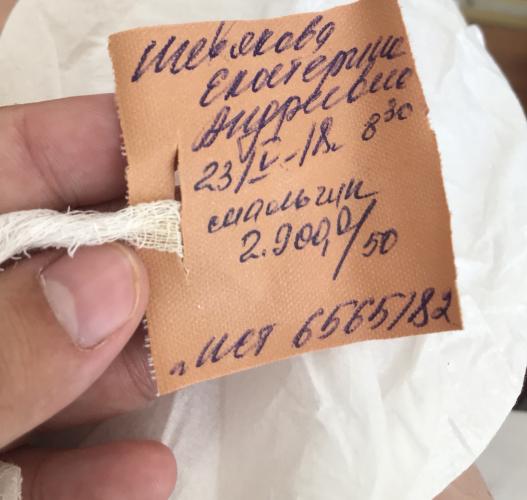 Шевякова
Екатерина
Андреевна
23/V-18г 8³⁰
мальчик
2.900,0/50
п/ист 6565/82